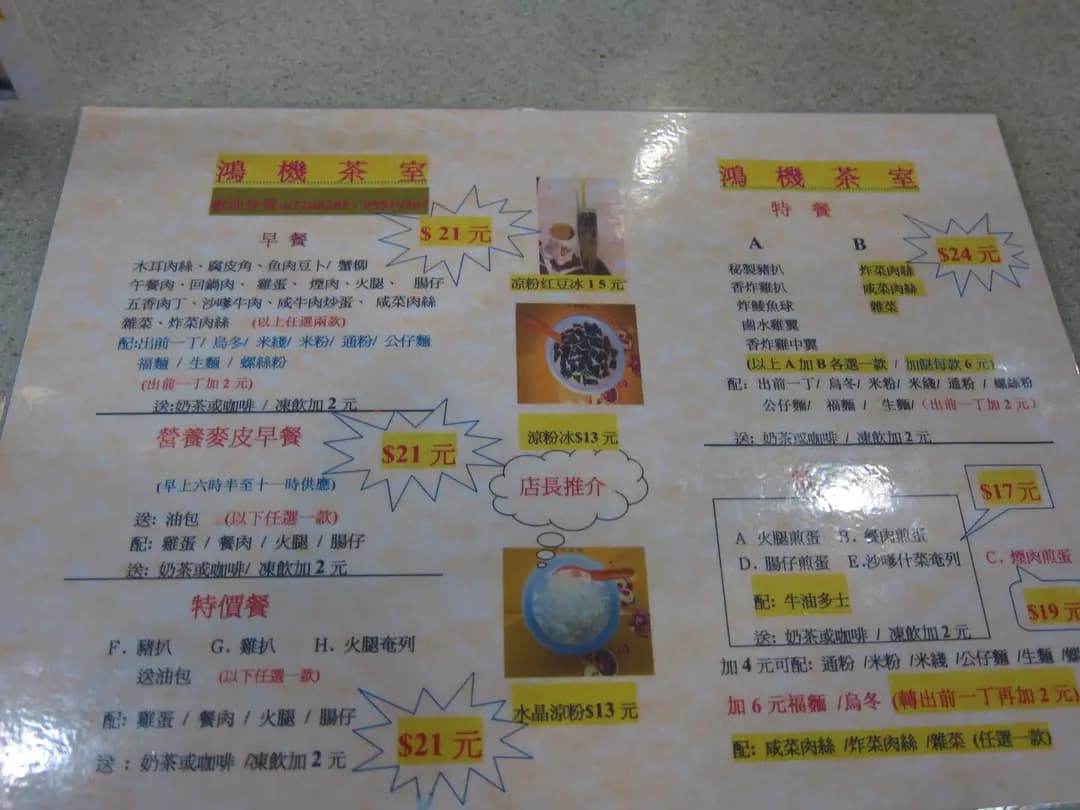 鴻機茶室
早餐
$ 21 元
木耳肉絲、腐皮角、魚肉豆卜/ 蟹柳
午餐肉、回鍋肉、雞蛋、煙肉、火腿、腸仔
五香肉丁、沙嗲牛肉、咸牛肉炒蛋、咸菜肉絲
雜菜、炸菜肉絲 (以上任選兩款)
配:出前一丁/ 烏冬/ 米綫/ 米粉/ 通粉/ 公仔麵
福麵 / 生麵 / 螺絲粉
(出前一丁加 2 元)
送:奶茶或咖啡 / 凍飲加 2 元
營養麥皮早餐
$21 元
(早上六時半至十一時供應)
送: 油包 (以下任選一款)
配: 雞蛋 / 餐肉 / 火腿 / 腸仔
送: 奶茶或咖啡/ 凍飲加 2 元
特價餐
F. 豬扒 G. 雞扒 H. 火腿奄列
送油包 (以下任選一款)
配: 雞蛋 / 餐肉 / 火腿 / 腸仔
$21 元
送 : 奶茶或咖啡 /凍飲加 2 元
涼粉紅豆冰 1 5 元
涼粉冰$13 元
店長推介
水晶涼粉$13 元
鴻機茶室
特餐
$24 元
A B
秘製豬扒 炸菜肉絲
香炸雞扒 咸菜肉絲
炸鯪魚球 雜菜
鹵水雞翼
香炸雞中翼
(以上 A 加 B 各選一款 / 加餸每款 6 元)
配: 出前一丁/ 烏冬/ 米粉/ 米綫/ 通粉 / 螺絲粉
公仔麵/ 福麵 / 生麵/ (出前一丁加 2 元)
送: 奶茶或咖啡 / 凍飲加 2 元
$17 元
A 火腿煎蛋 B. 餐肉煎蛋
D. 腸仔煎蛋 E.沙嗲什菜奄列 C. 煙肉煎蛋
配: 牛油多士
$19 元
送: 奶茶或咖啡 / 凍飲加 2 元
加 4 元可配: 通粉 /米粉 /米綫 /公仔麵 /生麵
加 6 元福麵 /烏冬 (轉出前一丁再加 2 元)
配: 咸菜肉絲 /炸菜肉絲 /雜菜 (任選一款)